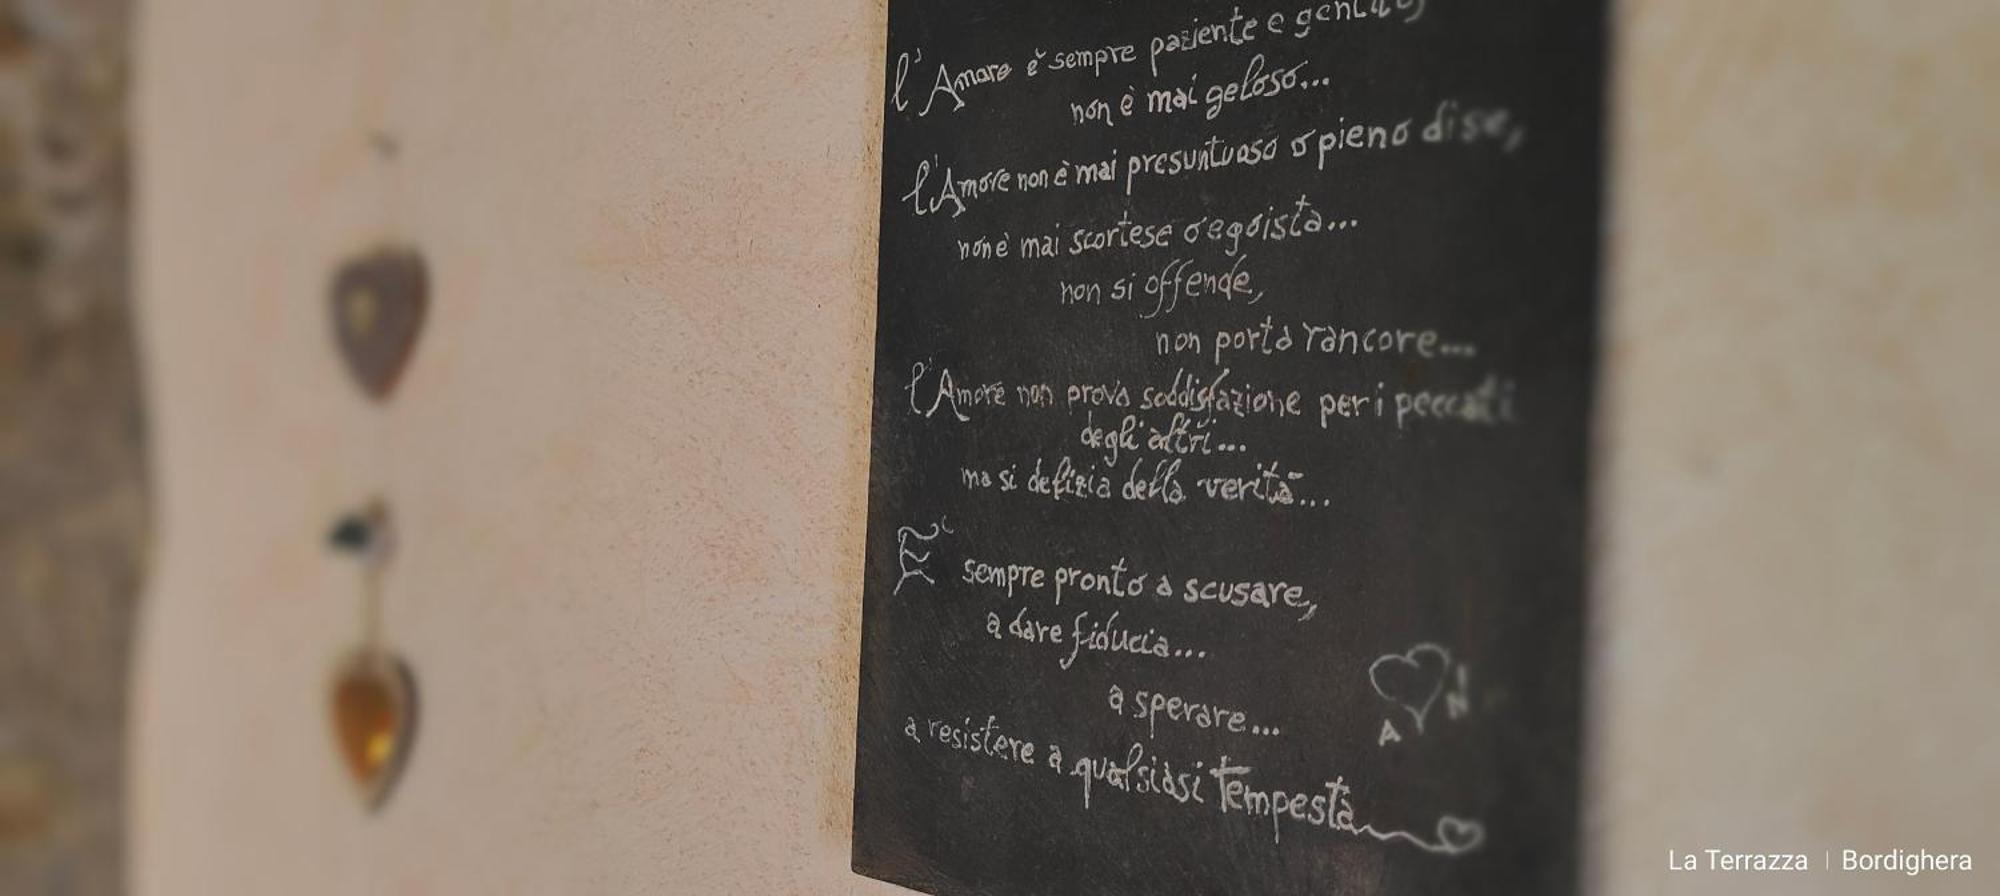 l'Amore è sempre paziente e gentile,
non è mai geloso...
l'Amore non è mai presuntuoso o pieno di se,
non è mai scortese o egoista...
non si offende,
non porta rancore...
l'Amore non prova soddisfazione per i peccati
degli altri...
ma si delizia della verità...
È sempre pronto a scusare,
a dare fiducia...
a sperare...
a resistere a qualsiasi Tempesta
A
I
N
La Terrazza | Bordighera